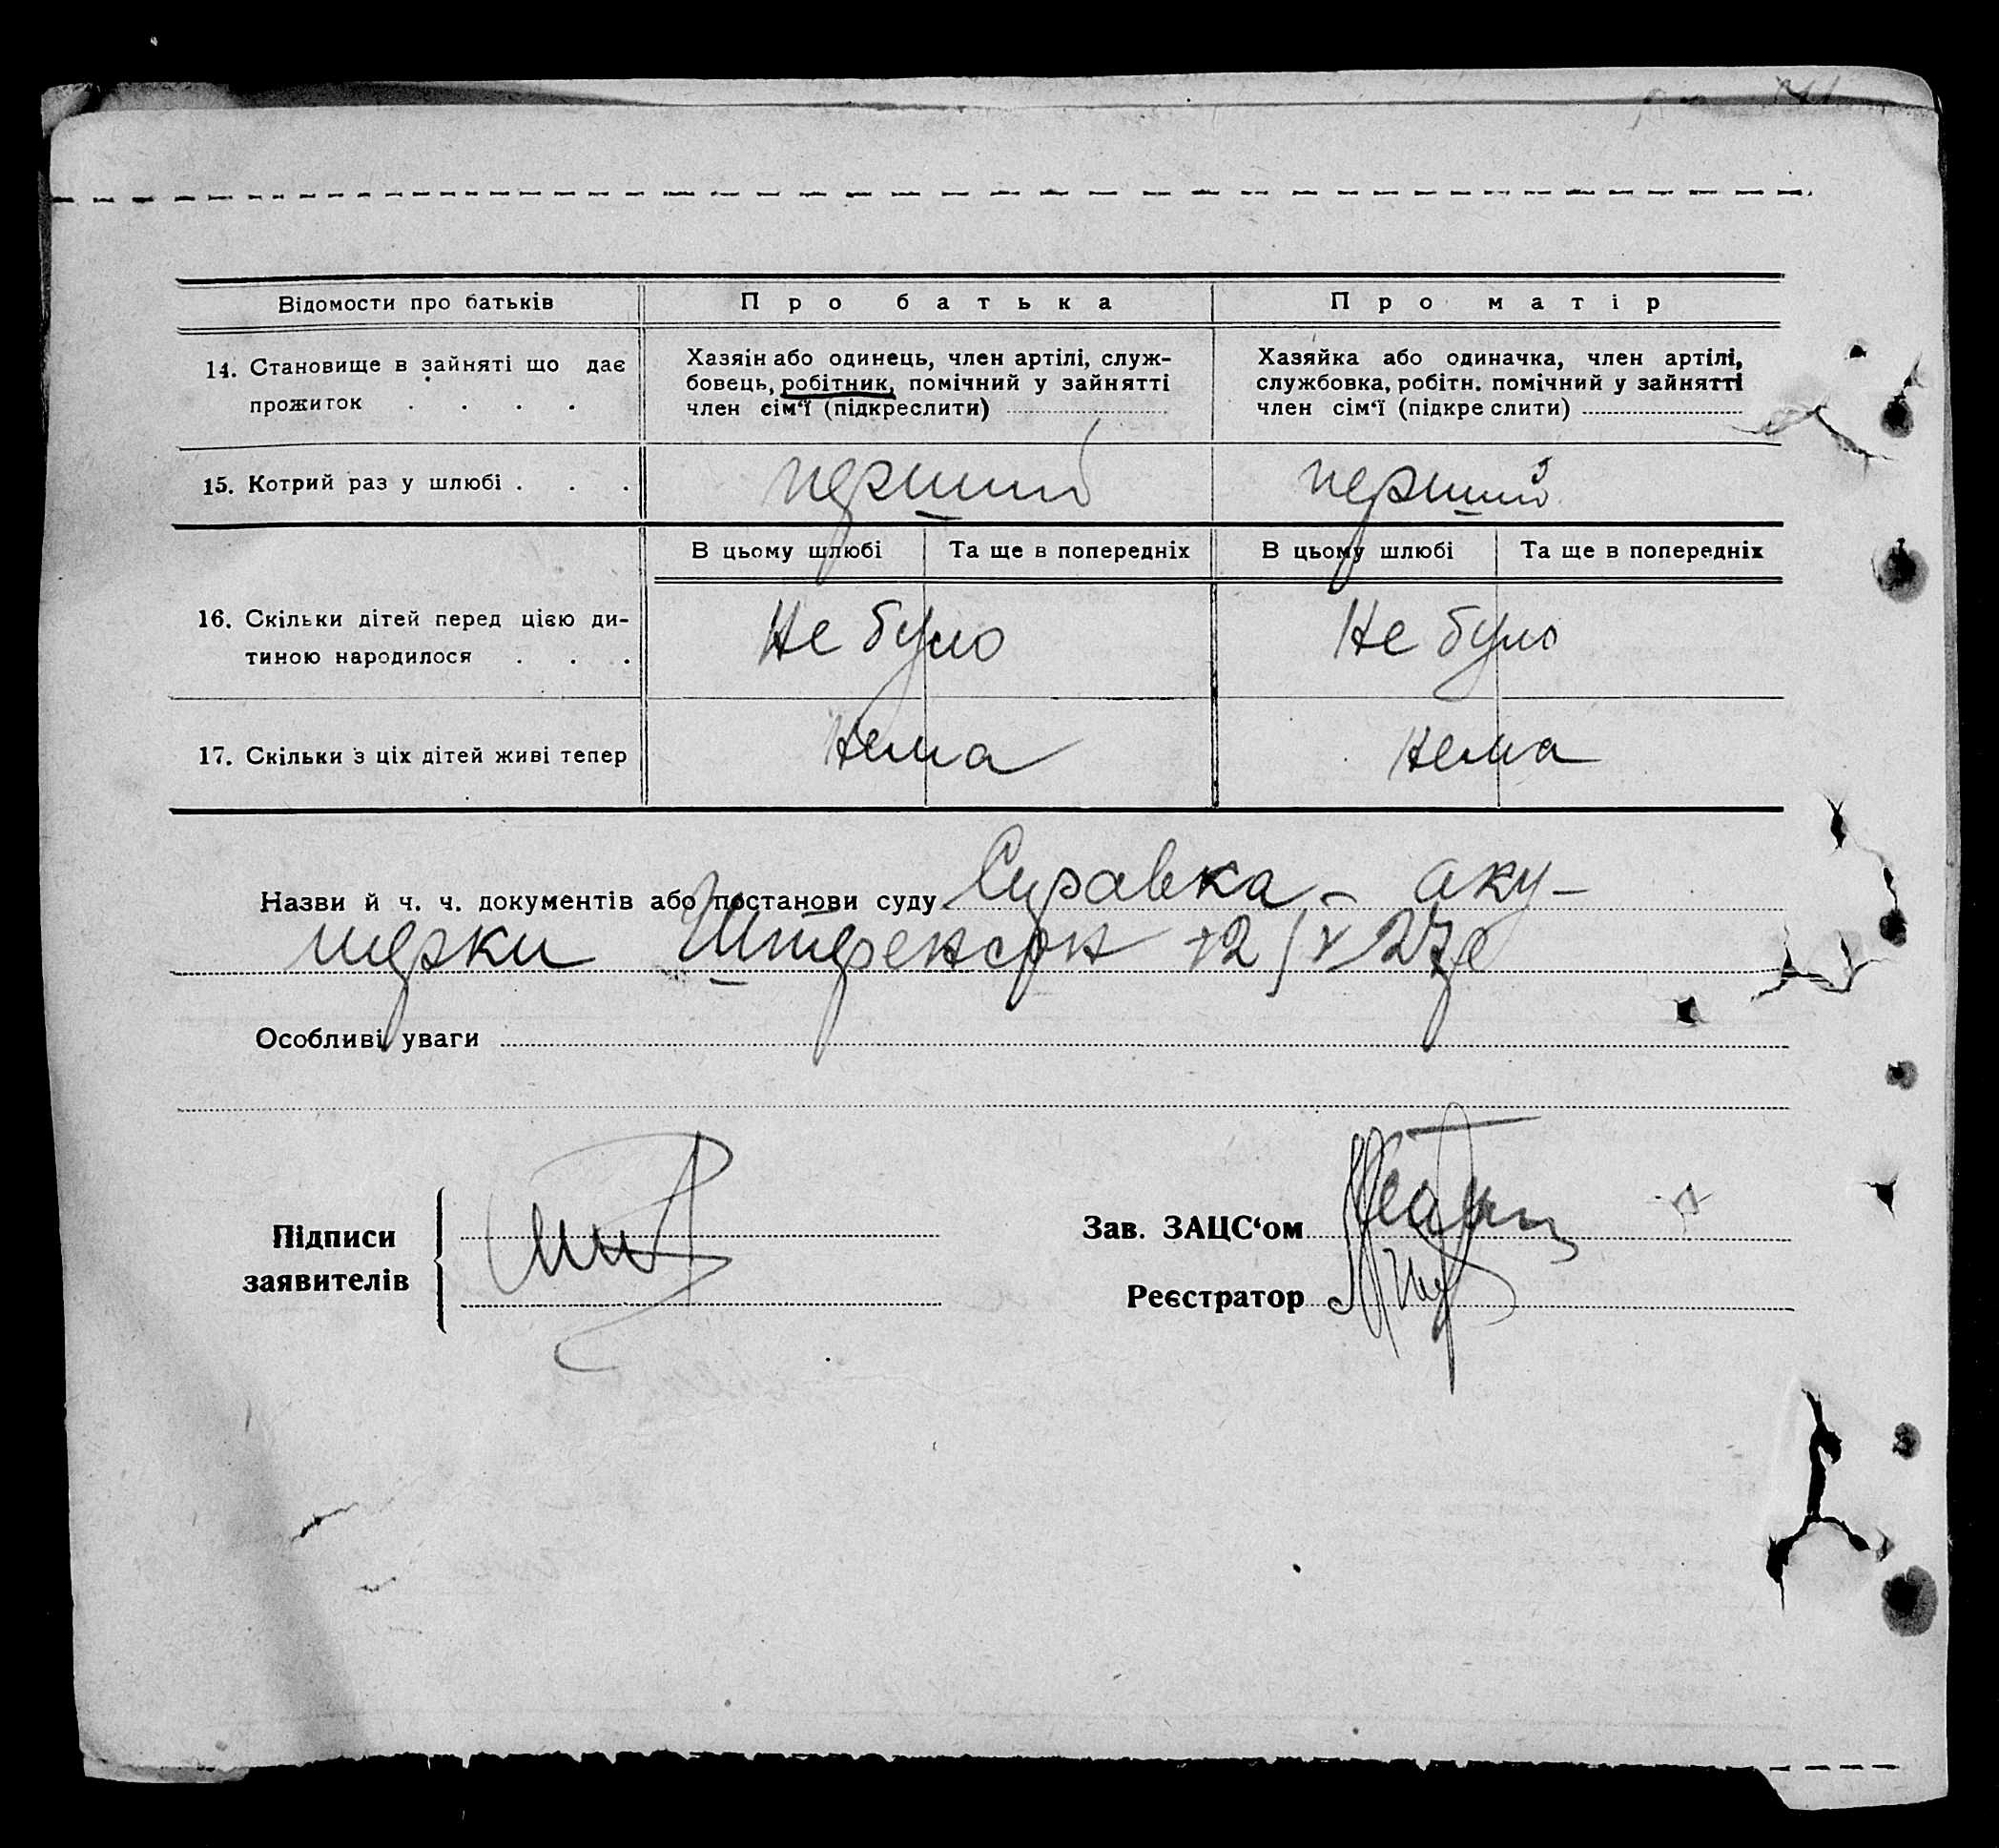 Відомости про батьків
Про батька
Про матір
14. Становище в зайняті що дає
прожиток . . . .
Хазяїн або одинець, член артілі, служ-
бовець, робітник, помічний у зайнятті
член сім‘ї (підкреслити)
Хазяйка або одиначка, член артілі,
службовка, робітн. помічний у зайнятті
член сім‘ї (підкре слити)
15. Котрий раз у шлюбі . . .
перший
перший
В цьому шлюбі
Та ще в попередніх
В цьому шлюбі
Та ще в попередніх
16. Скільки дітей перед цією ди-
тиною народилося . . .
Не було
Не було
17. Скільки з ціх дітей живі тепер
Нема
Нема
Назви й ч. ч. документів або постанови суду Справка - аку-
шерки 27
Особливі уваги
Підписи
заявителів
Зав. ЗАЦС‘ом
Реєстратор